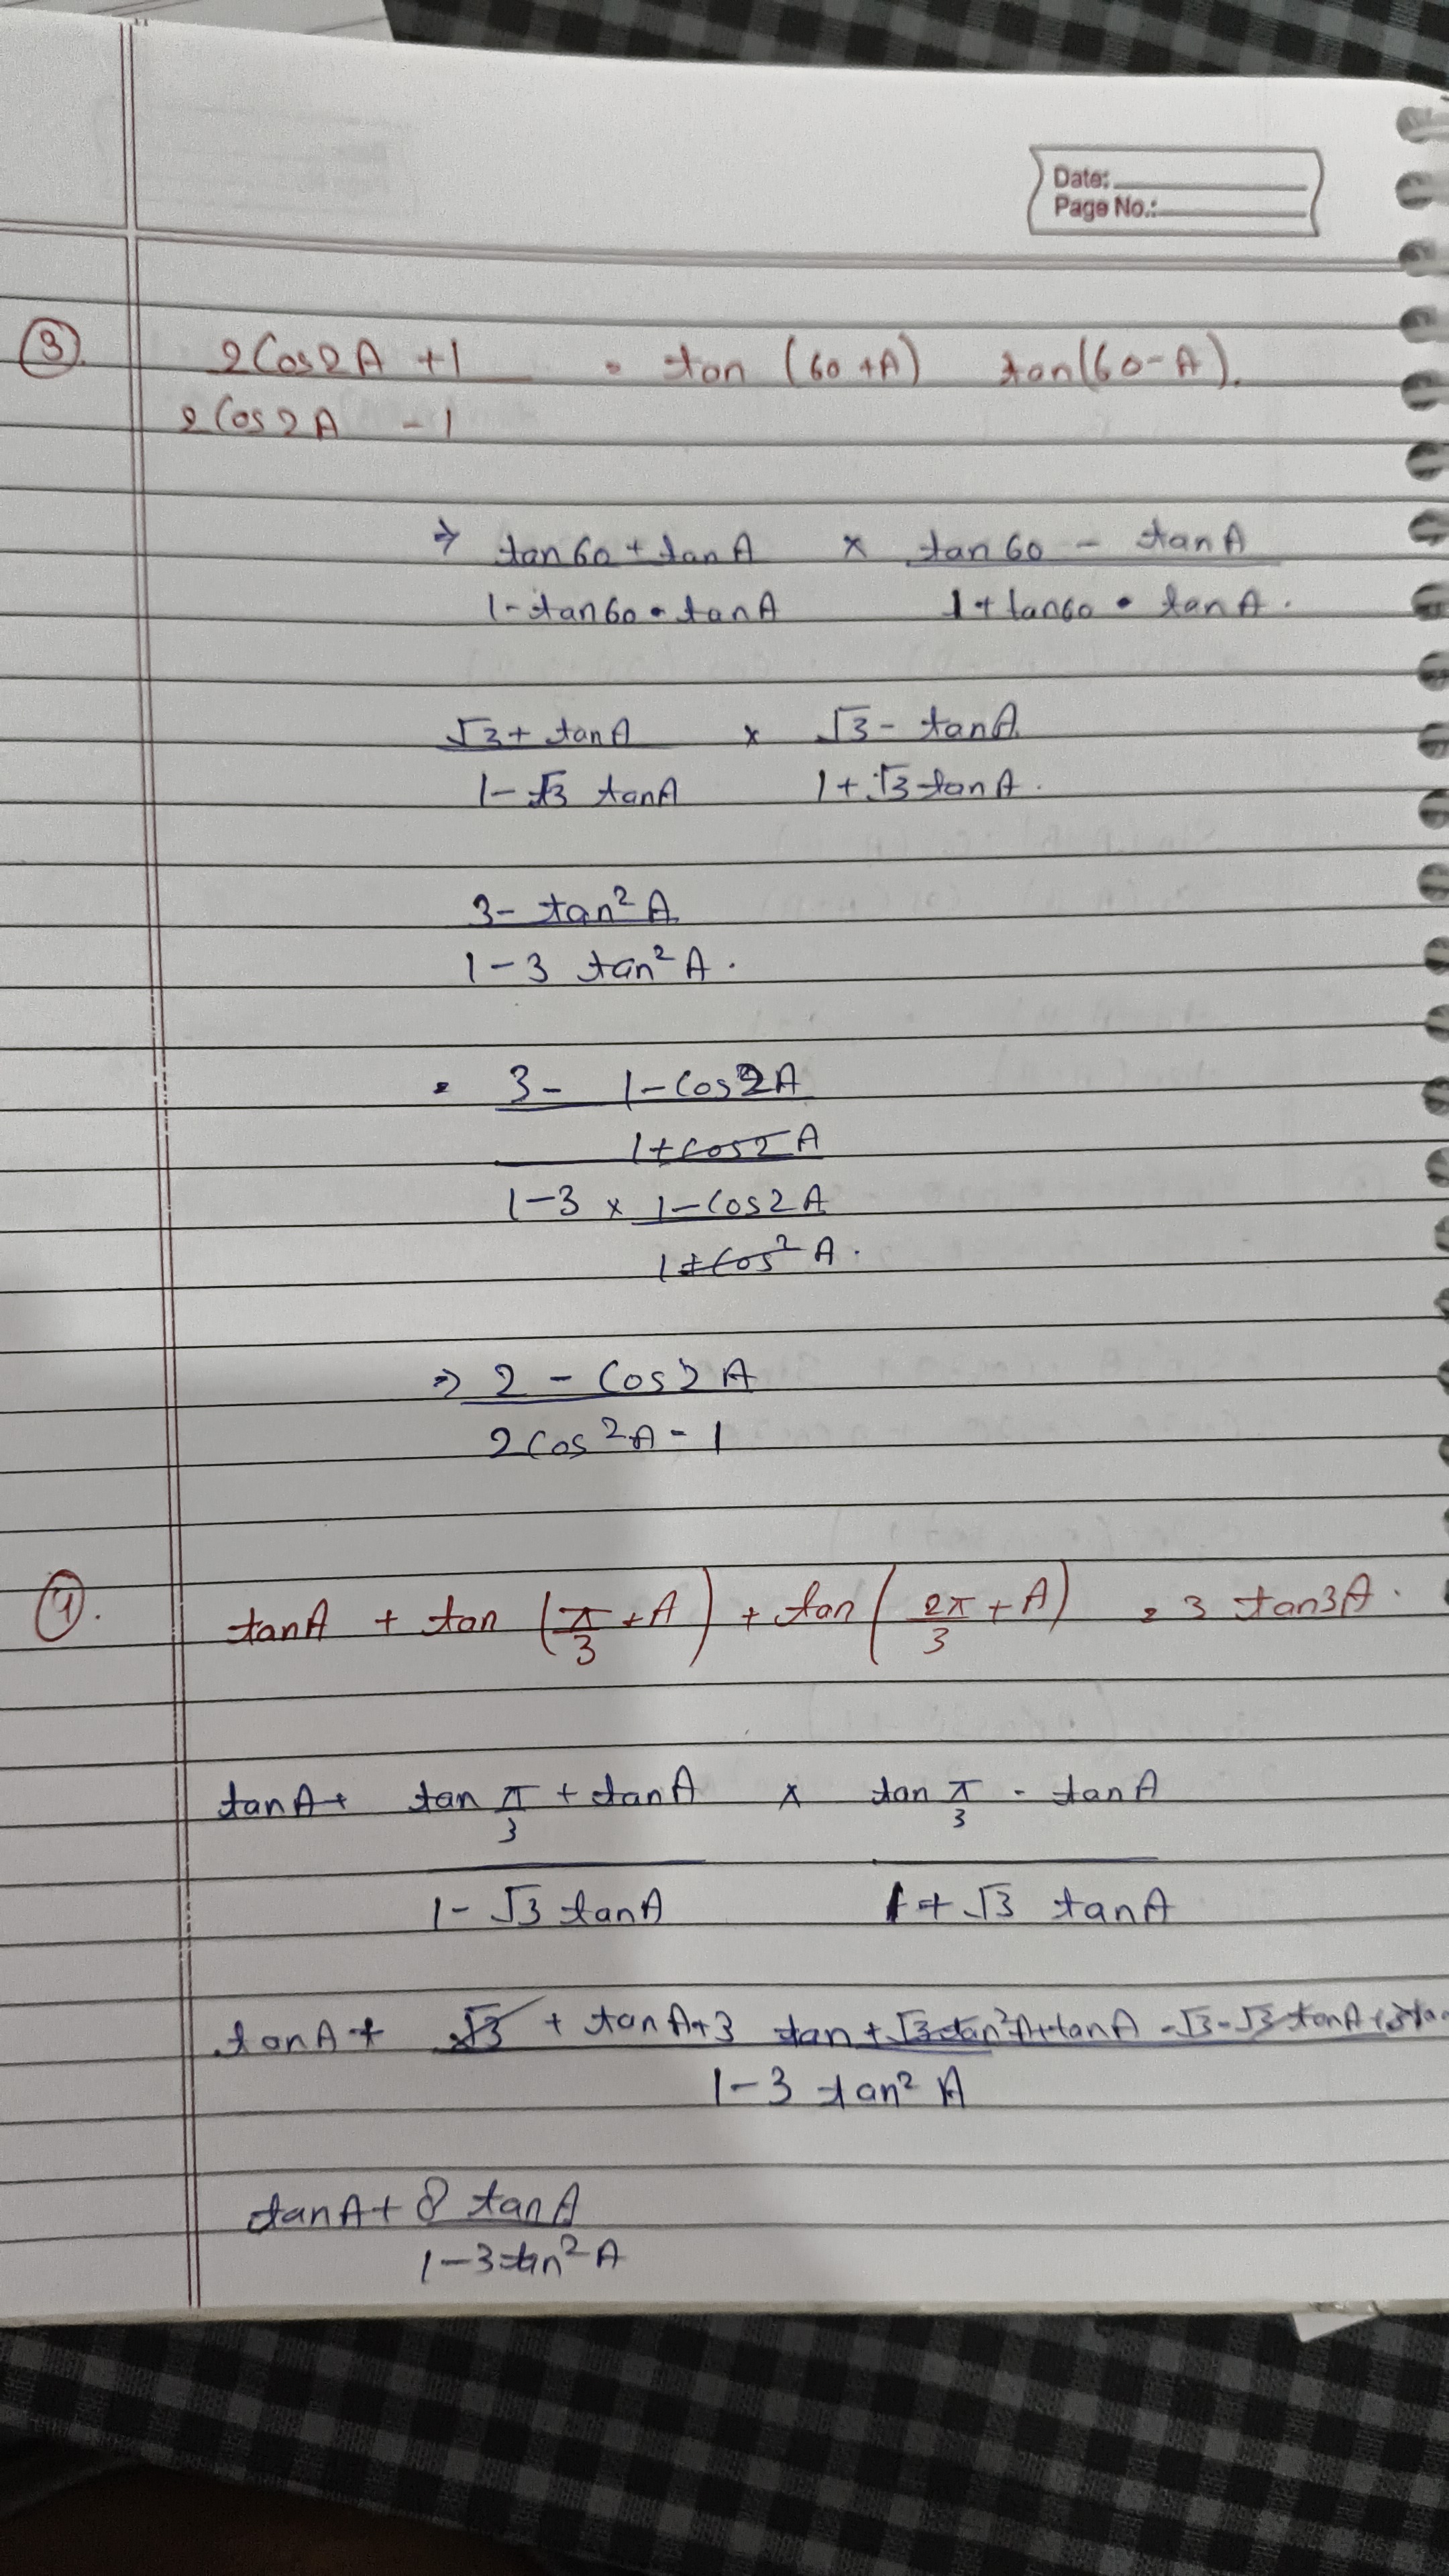 Date:
Page No.:
③ 2Cos2A + 1 = tan (60 + A) tan(60 - A).
2Cos2A - 1
⇒ tan60 + tanA × tan60 - tanA
1 - tan60 • tanA 1 + tan60 • tanA.
√3 + tanA × √3 - tanA
1 - √3 tanA 1 + √3 tanA.
3 - tan² A
1 - 3 tan² A.
= 3 - 1 - Cos2A
1 + cos2A
1 - 3 × 1 - Cos2A
1 + Cos² A.
⇒ 2 - Cos2A
2Cos²A - 1
tanA + tan (π/3 + A) + tan (2π/3 + A) = 3 tan3A.
tanA + tan π/3 + tanA × tan π/3 - tanA
1 - √3 tanA 1 + √3 tanA
tanA + √3 + tanA + 3 tan + √3 tan²A + tanA - √3 - √3 tanA
1 - 3 tan² A
tanA + 8 tanA
1 - 3tan² A